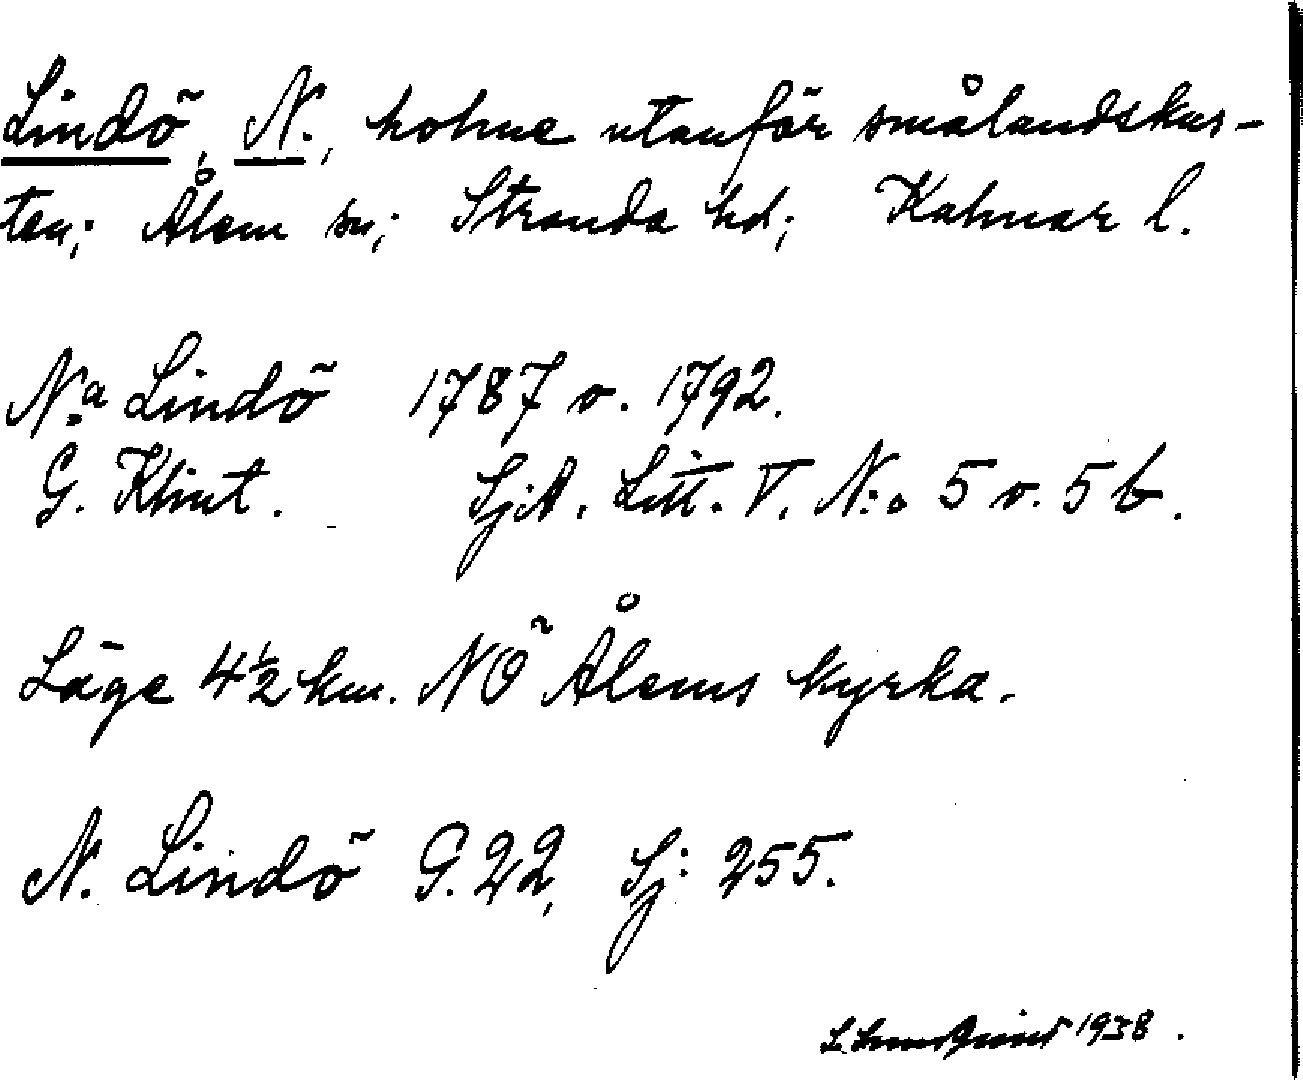 Lindö, N., holme utanför smålandskus-
ten; Ålem sn; Stranda hd; Kalmar l.
N:a Lindö 1787 o. 1792.
G. Klint. SjA. Litt. V. N:o 5 o. 5 b.
Läge 4½ km. NÖ Ålems kyrka.
N. Lindö G. 22, Sj: 255.
1938.